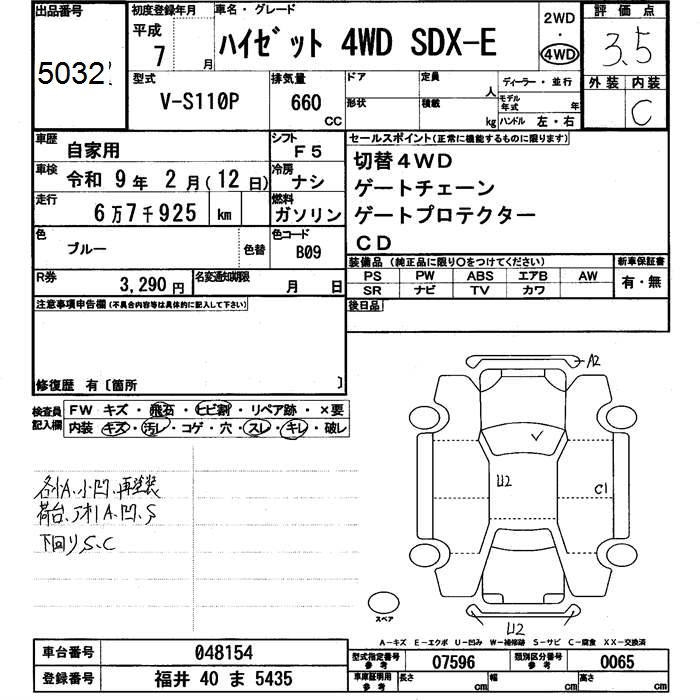 出品番号 初度登録年月 車名・グレード 2WD 評価点
5032
平成 7 月 ハイゼット 4WD SDX-E ・ 4WD 3.5
型式 排気量 ドア 定員 人 ディーラー・並行 外装 内装
V-S110P 660 CC 形状 積載 kg モデル年式 年 C
ハンドル 左・右
車歴 自家用 シフト F5 セールスポイント(正常に機能するものに限ります)
車検 令和 9年 2月(12日) 冷房 ナシ 切替4WD
ゲートチェーン
走行 6万7千925 km 燃料 ガソリン ゲートプロテクター
色 ブルー 色替 色コード B09 CD
装備品(純正品に限り○をつけてください) 新車保証書
R券 3,290円 名変通知期限 月 日 PS PW ABS エアB AW 有・無
SR ナビ TV カワ
注意事項申告欄(不具合内容等は具体的に記入して下さい) 後日品
修復歴 有〔箇所 〕
検査員記入欄 FW キズ・飛石・ヒビ割・リペア跡・×要
内装 キズ・汚レ・コゲ・穴・スレ・キレ・破レ
A2
U2
C1
各小A、小凹、再塗装
荷台、アオリA、凹、S
下回りS、C
スペア
U2
A-キズ E-エクボ U-凹み W-補修跡 S-サビ C-腐食 XX-交換済
車台番号 048154 型式指定番号参考 07596 類別区分番号参考 0065
登録番号 福井 40 ま 5435 車庫証明用参考 長さ cm 幅 cm 高さ cm